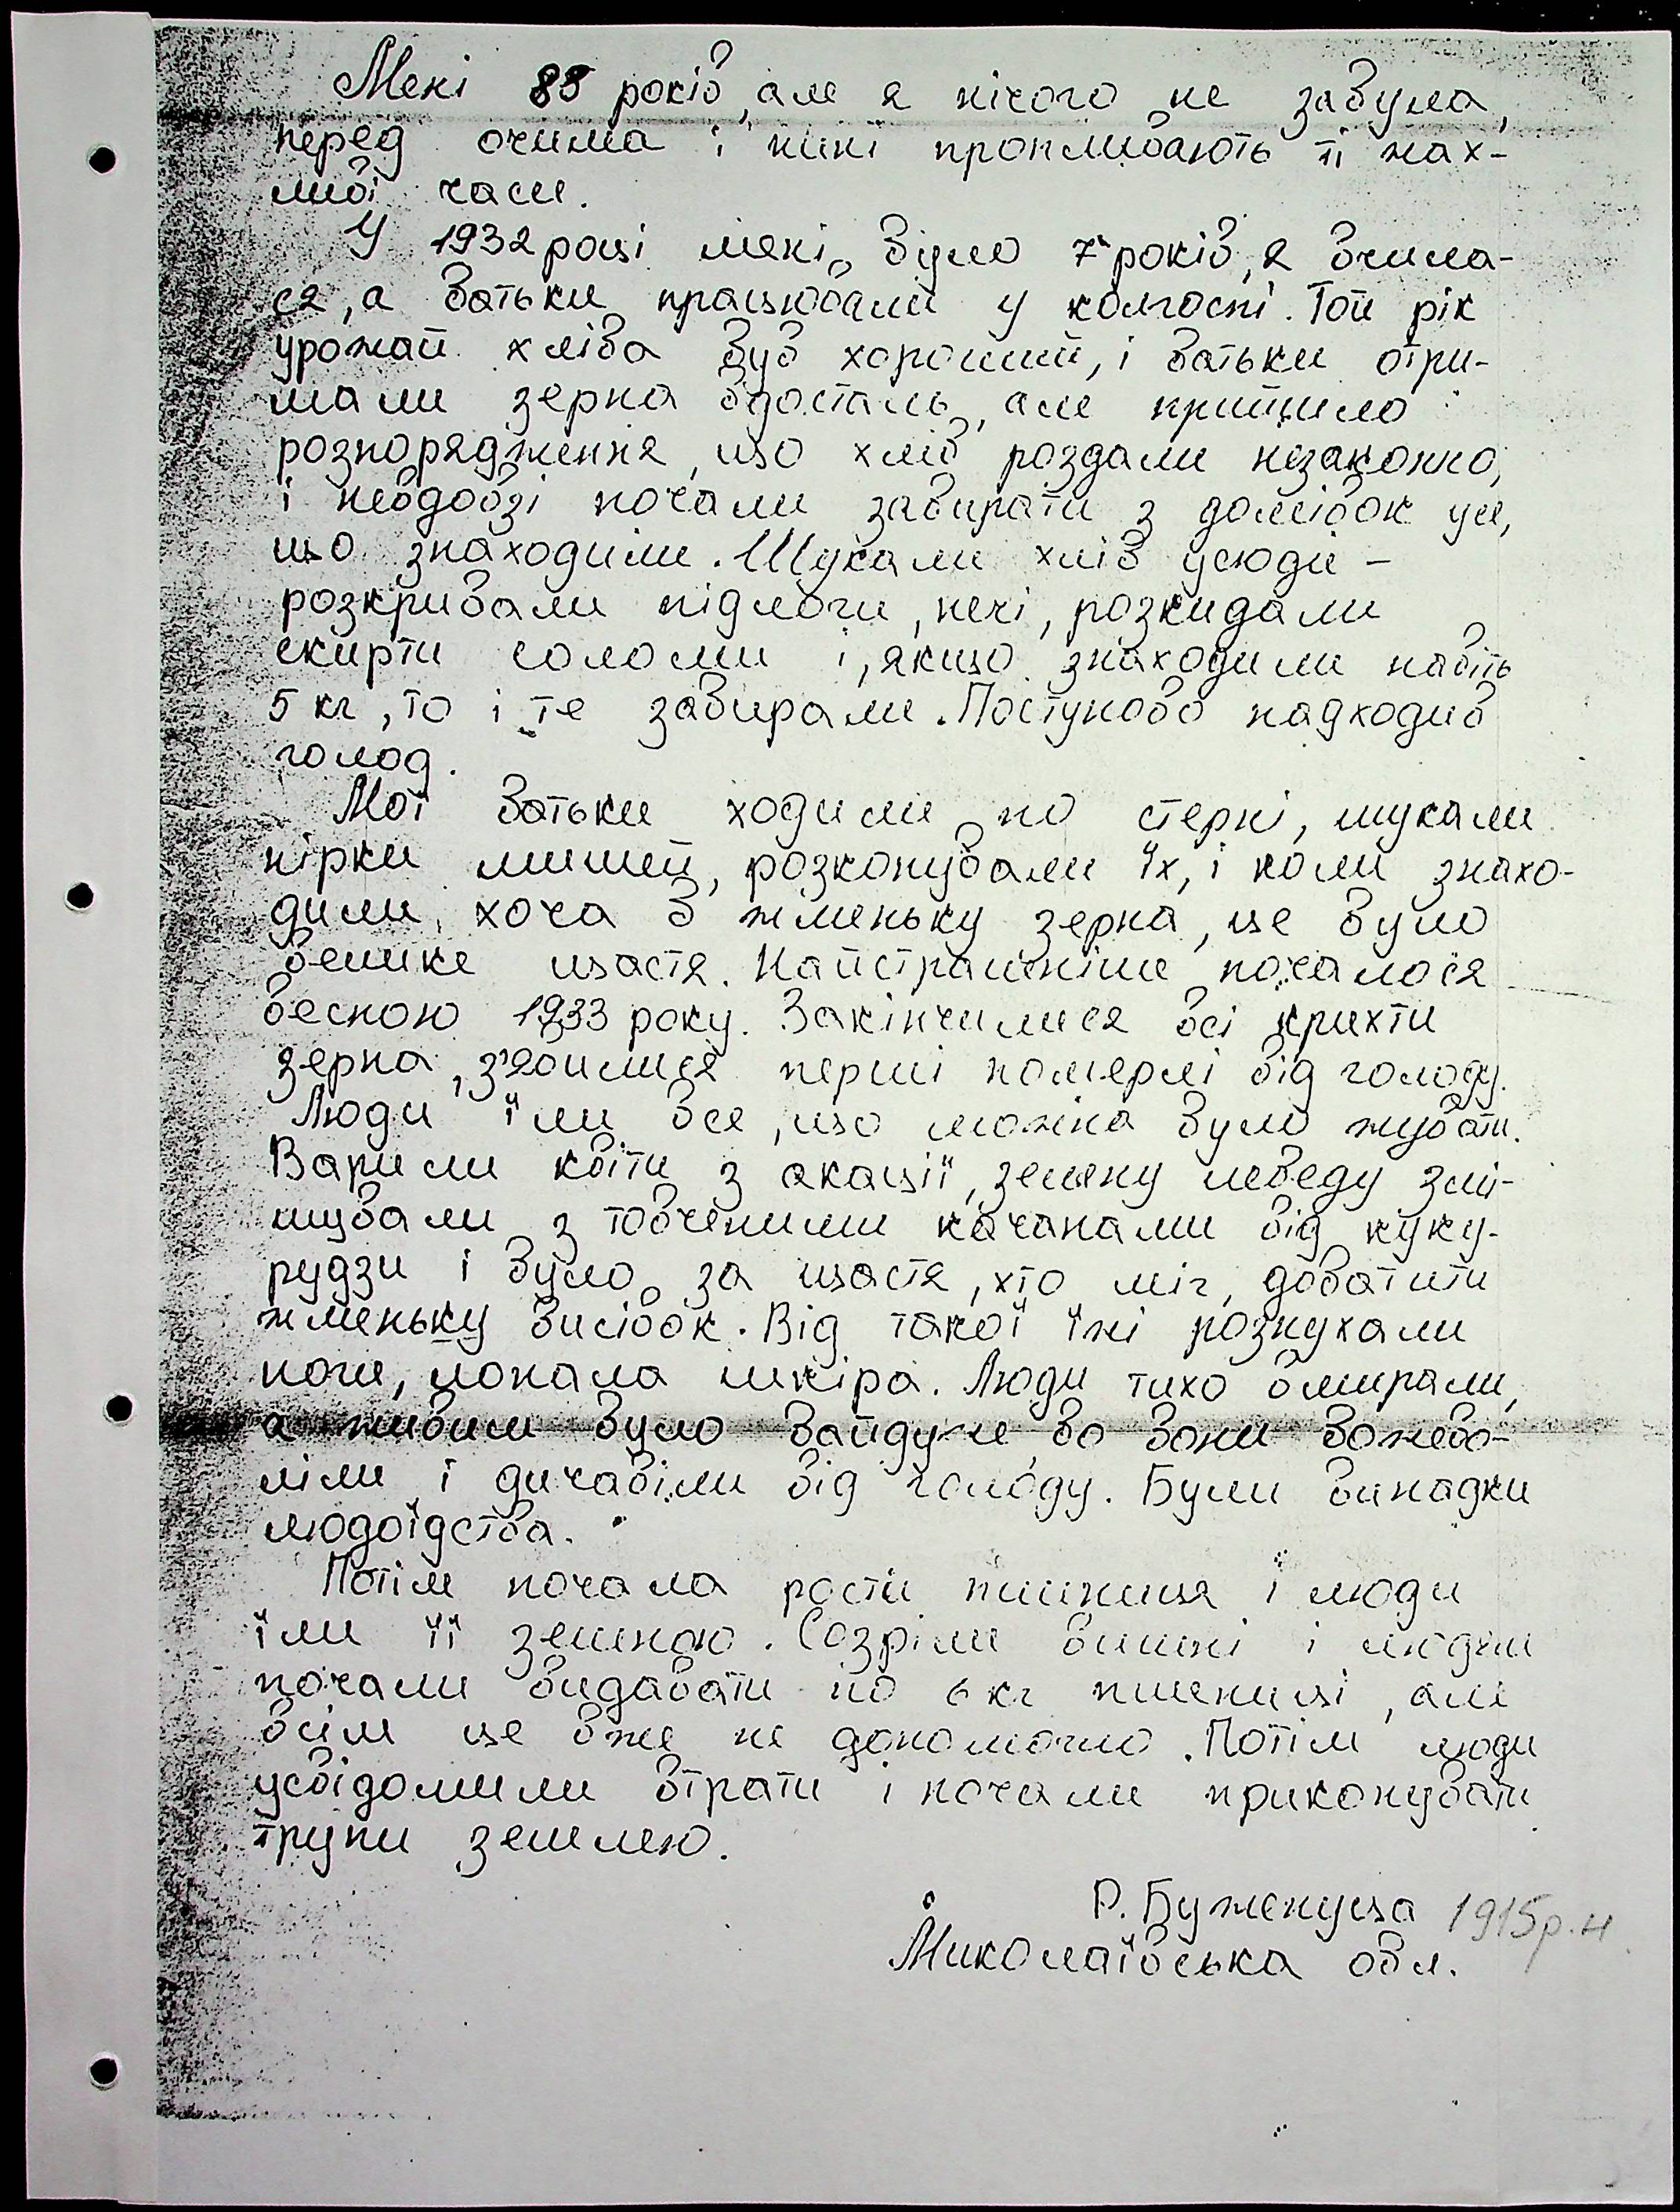 Мені 83 років, але я нічого не забула,
перед очима і нині пропливають ті жах-
ливі часи.
У 1932 році мені було 7 років, я вчила-
ся, а батьки працювали у колгоспі. Той рік
урожай хліба був хороший, і батьки отри-
мали зерна вдосталь, але прийшло
розпорядження, що хліб роздали незаконно,
і невдовзі почали забирати з домівок усе,
що знаходили. Шукали хліб усюди –
розкривали підлоги, печі, розкидали
скирти соломи і, якщо знаходили навіть
5 кг, то і те забирали. Поступово надходив
голод.
Мої батьки ходили по стерні, шукали
нірки мишей, розкопували їх, і коли знахо-
дили хоча б жменьку зерна, це було
велике щастя. Найстрашніше почалося
весною 1933 року. Закінчилися всі крихти
зерна, з'явилися перші померлі від голоду.
Люди їли все, що можна було жувати.
Варили квіти з акації, зелену лебеду змі-
шували з товченими качанами від куку-
рудзи і було за щастя, хто міг добавити
жменьку висівок. Від такої їжі розпухали
ноги, лопала шкіра. Люди тихо вмирали,
а живим було байдуже, бо вони божево-
ліли і дичавіли від голоду. Були випадки
людоїдства.
Потім почала рости пшениця і люди
їли її зеленою. Созріли вишні і людям
почали видавати по 6 кг пшениці, але
всім це вже не допомогло. Потім люди
усвідомили втрати і почали прикопувати
трупи землею.
Р. Буженуца 1915 р.н.
Миколаївська обл.